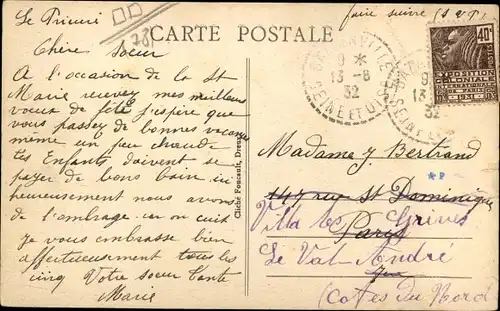 Le Prieuré
faire suivre (S.V.P.)
CARTE POSTALE
Chère Soeur
A l'occasion de la St
Marie recevez mes meilleurs
voeux de fête j'espère que
vous passez de bonnes vacances
même un peu chaude
les Enfants doivent se
payer de bons bain ici
heureusement nous avons
de l'ombrage car on cuit
Je vous embrasse bien
affectueusement tous les
cinq Votre soeur Tante
Marie
Cliché Foucault, Dreux
9 *
13 - 8
32
SEINE ET OISE
9
13
32
SEINE
40c
EXPOSITION
COLONIALE
INTERNATIONALE
PARIS 1931
Madame J. Bertrand
147, rue St Dominique
Villa les Grives
Paris
Le Val-André
(Côtes du Nord)